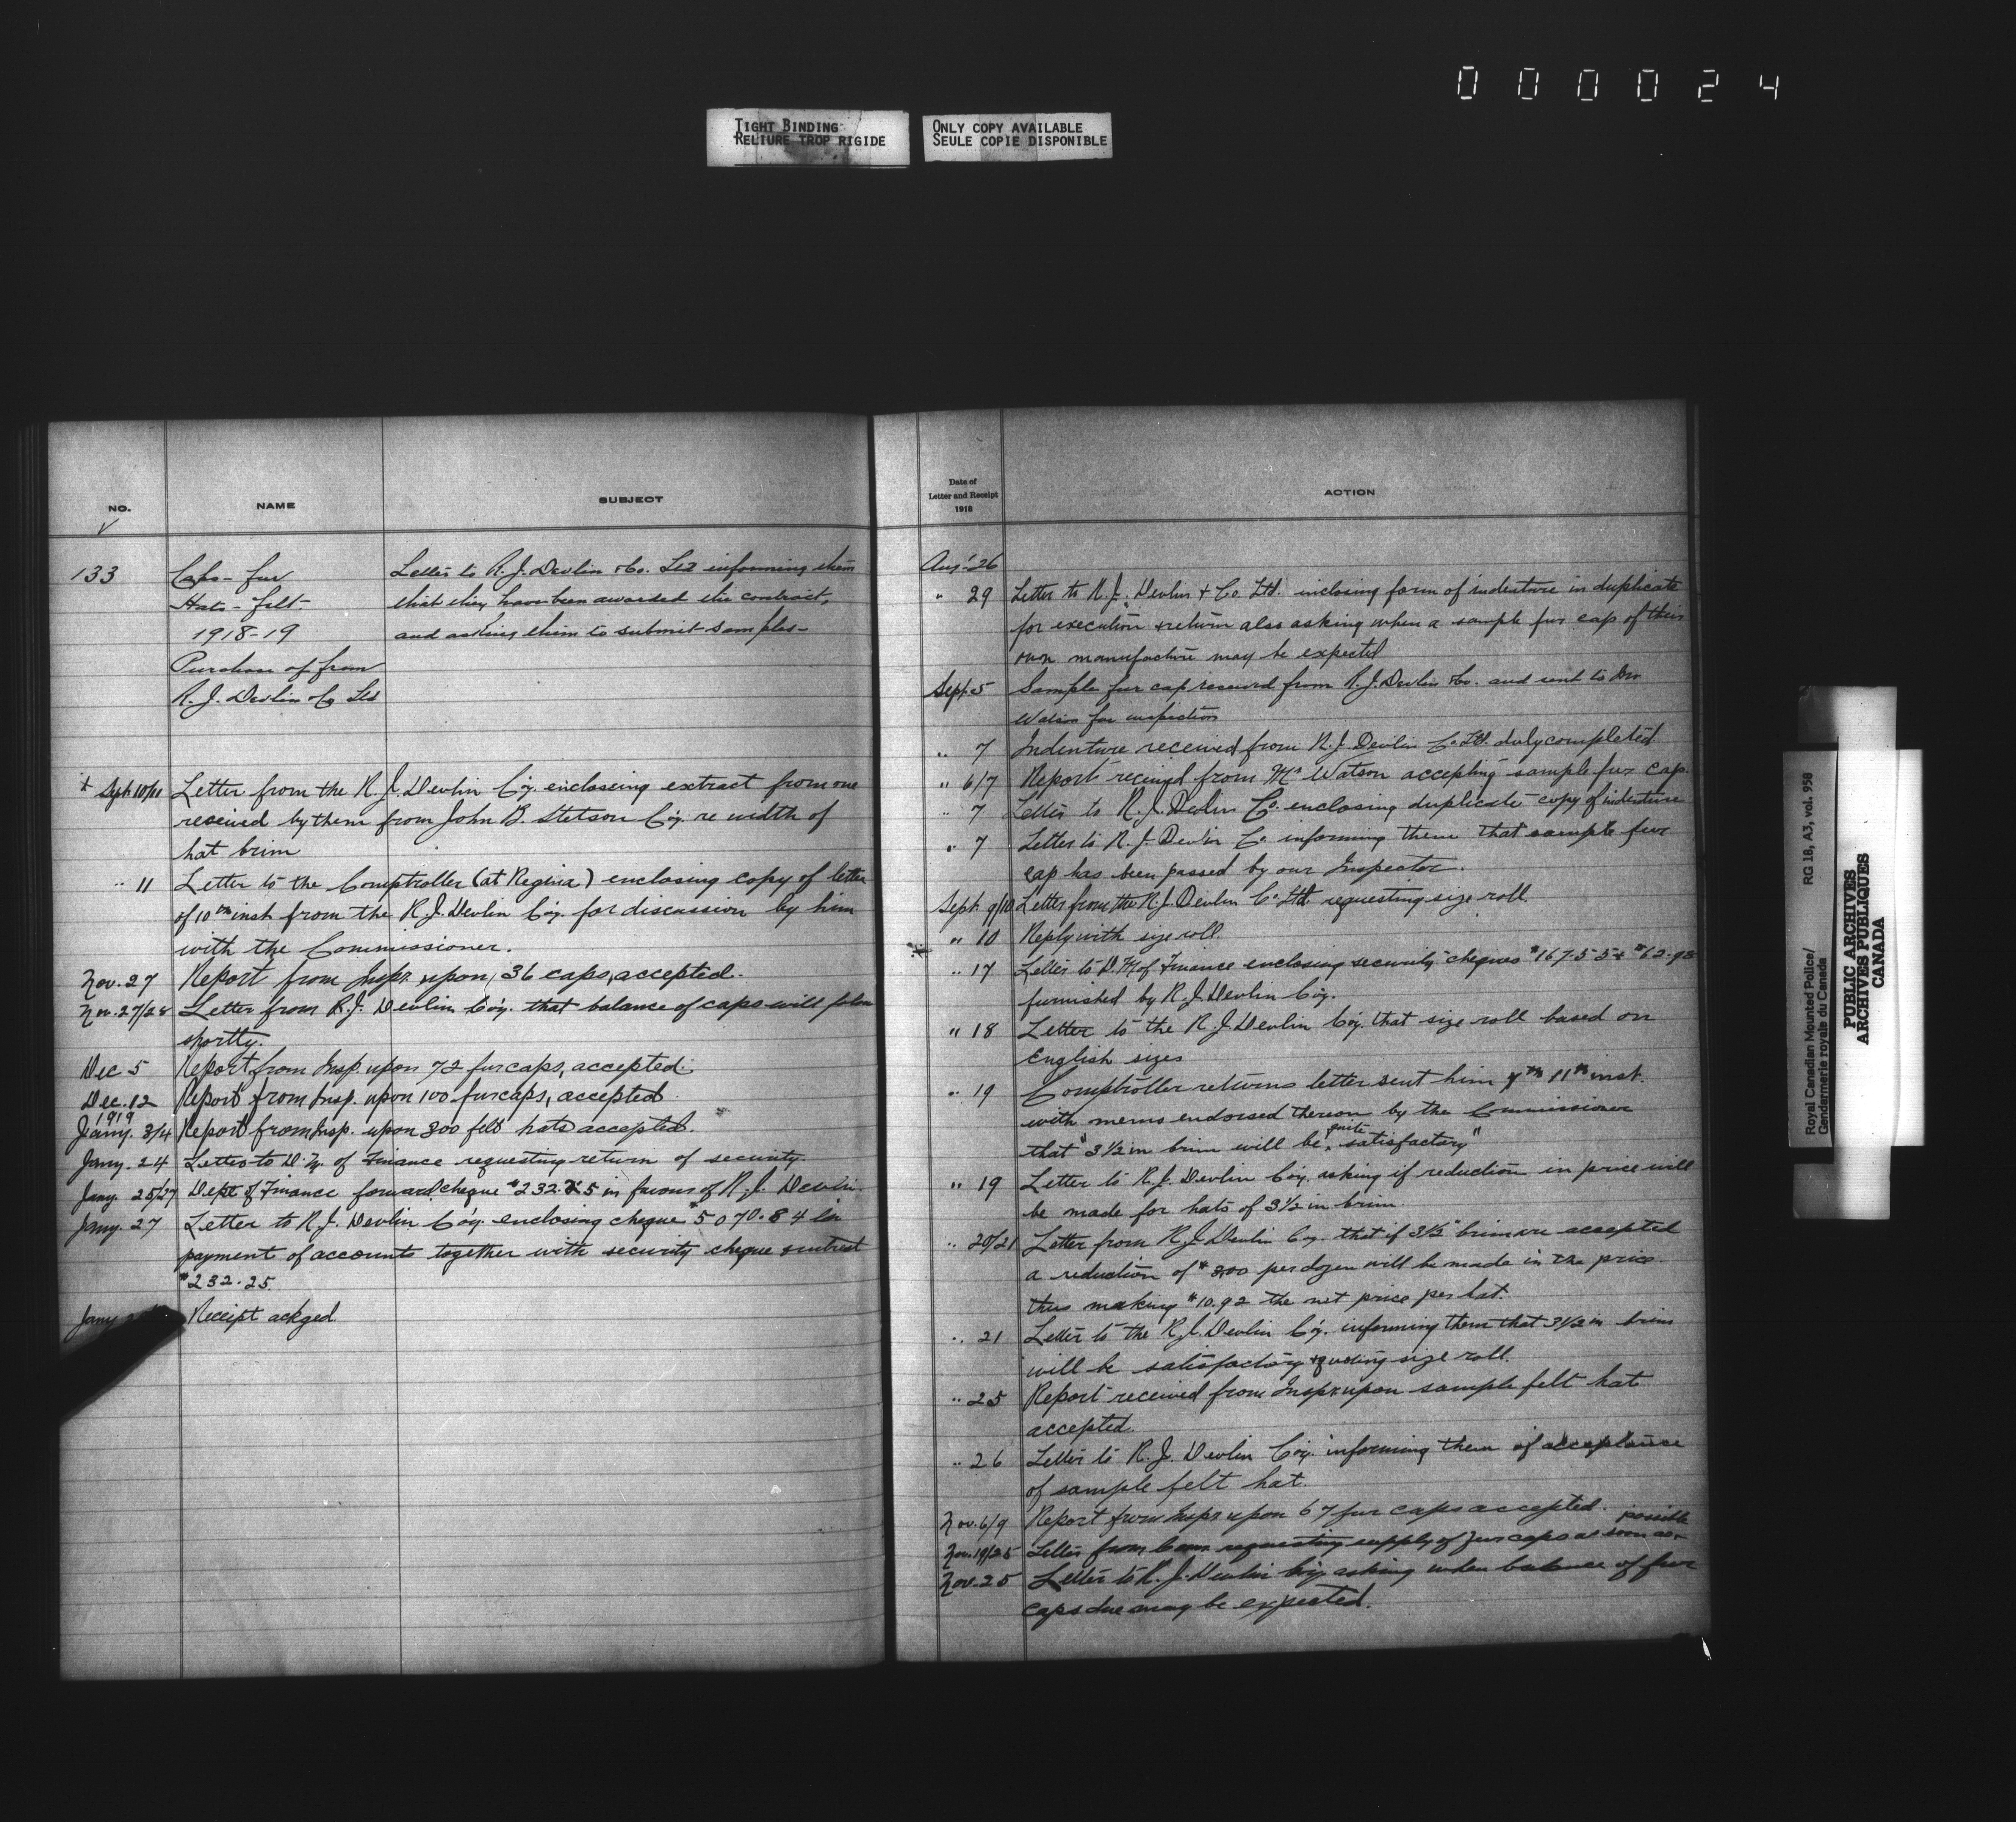 000024
TIGHT BINDING
RELIURE TROP RIGIDE
ONLY COPY AVAILABLE
SEULE COPIE DISPONIBLE
NO.
NAME
SUBJECT
133
Caps - fur
Hats - felt
1918-19
Purchase of from
R. J. Devlin Co Ltd
Letter to R. J. Devlin & Co. Ltd informing them
that they have been awarded the contract,
and asking them to submit samples -
Sept 10/11 Letter from the R. J. Devlin Co'y. encloseing extract from one
received by them from John B. Stetson Co'y. re width of
hat brim
" 11 Letter to the Comptroller (at Regina) enclosing copy of letter
of 10th inst from the R. J. Devlin Co'y. for discussion by him
with the Commissioner.
Nov. 27 Report from Inspr. upon 36 caps, accepted.
Nov. 27/28 Letter from R. J. Devlin Co'y. that balance of caps will follow
shortly.
Dec 5 Report from Insp. upon 72 fur caps, accepted.
Dec. 12 Report from Insp. upon 100 fur caps, accepted
1919
Jany. 3/4 Report from Insp. upon 300 felt hats accepted.
Jany. 24 Letter to D. M. of Finance requesting return of security.
Jany. 25/27 Dept of Finance forward cheque $232.25 in favour of R. J. Devlin.
Jany. 27 Letter to R. J. Devlin Co'y. enclosing cheque $5070.84 in
payment of accounts together with security cheque & intrest
$232.25.
Jany Receipt ackged.
Date of
Letter and Receipt
1918
ACTION
Aug. 26
" 29 Letter to R. J. Devlin & Co. Ltd. inclosing form of indenture in duplicate
for execution & return also asking when a sample fur cap of their
own manufacture may be expected
Sept. 5 Sample fur cap received from R. J. Devlin & Co. and sent to
Watson for inspection
" 7 Indenture received from R. J. Devlin Co. Ltd. duly completed
" 6/7 Report received from Mr Watson accepting sample fur cap.
" 7 Letter to R. J. Devlin Co. enclosing duplicate copy of indenture
" 7 Letter to R. J. Devlin Co. informing them that sample fur
cap has been passed by our Inspector.
Sept. 9/10 Letter from the R. J. Devlin Co. Ltd. requesting size roll.
" 10 Reply with size roll.
" 17 Letter to D. M. of Finance enclosing security cheques $167.55 & $62.98
furnished by R. J. Devlin Co'y.
" 18 Letter to the R. J. Devlin Co'y. that size roll based on
English sizes
" 19 Comptroller returns letter sent him 11th inst.
with memo endorsed thereon by the Commissioner
that "3 1/2 in brim will be quite satisfactory"
" 19 Letter to R. J. Devlin Co'y. asking if reduction in price will
be made for hats of 3 1/2 in brim.
" 20/21 Letter from R. J. Devlin Co'y. that if 3 1/2" brim are accepted
a reduction of $3.00 per dozen will be made in the price
thus making $10.92 the net price per hat.
" 21 Letter to the R. J. Devlin Co'y. informing them that 3 1/2 in brim
will be satisfactory & quoting size roll.
" 25 Report received from Inspr upon sample felt hat
accepted.
" 26 Letter to R. J. Devlin Co'y. informing them of acceptance
of sample felt hat.
Nov. 6/9 Report from Inspr upon 67 fur caps accepted.
Nov. 19/25 Letter from Comr requesting supply of fur caps as soon as possible
Nov. 25 Letter to R. J. Devlin Co'y asking when balance of fur
caps due may be expected.
Royal Canadian Mounted Police/
Gendarmerie royale du Canada
RG 18, A3, vol. 958
PUBLIC ARCHIVES
ARCHIVES PUBLIQUES
CANADA